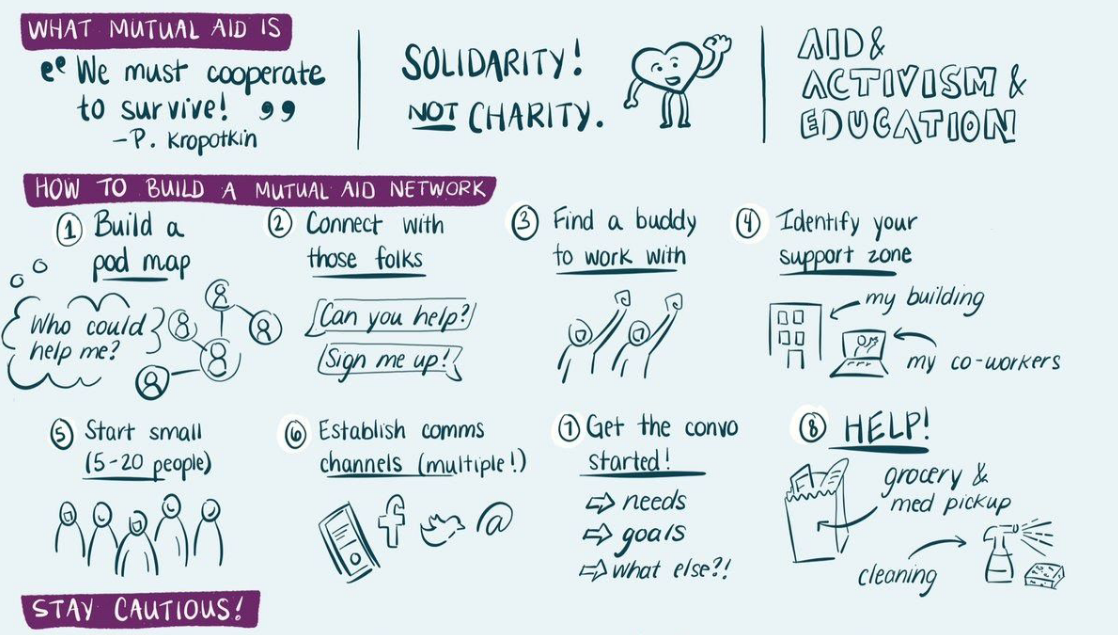 WHAT MUTUAL AID IS
“We must cooperate
to survive!”
-P. Kropotkin
SOLIDARITY!
NOT CHARITY.
AID &
ACTIVISM &
EDUCATION
HOW TO BUILD A MUTUAL AID NETWORK
1 Build a
pod map
Who could
help me?
2 Connect with
those folks
Can you help?
Sign me up!
3 Find a buddy
to work with
4 Identify your
support zone
my building
my co-workers
5 Start small
(5-20 people)
6 Establish comms
channels (multiple!)
f
@
7 Get the convo
started!
⇨ needs
⇨ goals
⇨ what else?!
8 HELP!
grocery &
med pickup
cleaning
STAY CAUTIOUS!